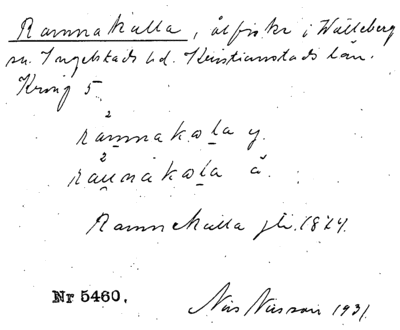 Ramnakulla, ålfiske i Wålleberg
sn. Ingelstads hd. Kristianstads län.
Kring 5
2
ramnakωla y.
2
raunakωla ä.
Ramnekulla jb. 1824.
Nr 5460. Nils Nilsson 1931.